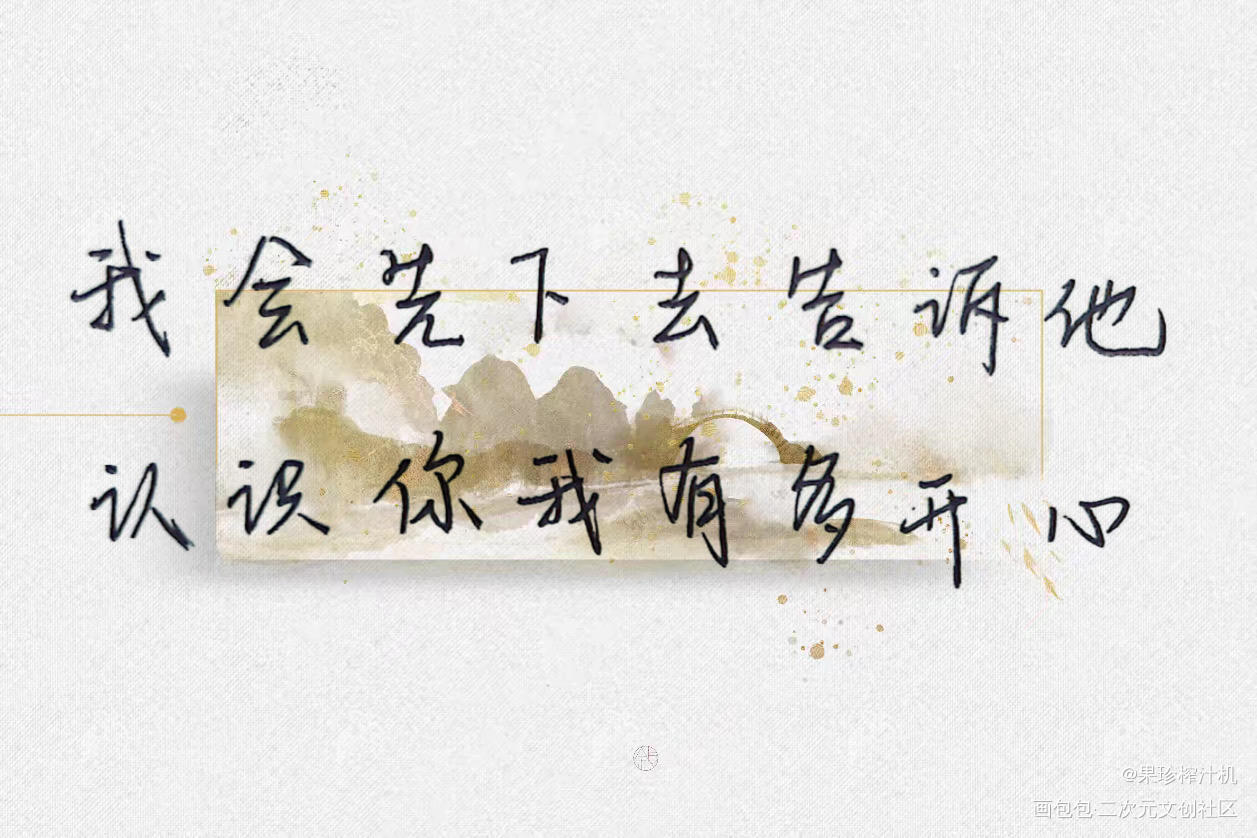 我会先下去告诉他
认识你我有多开心
@果珍榨汁机
画包包·二次元文创社区